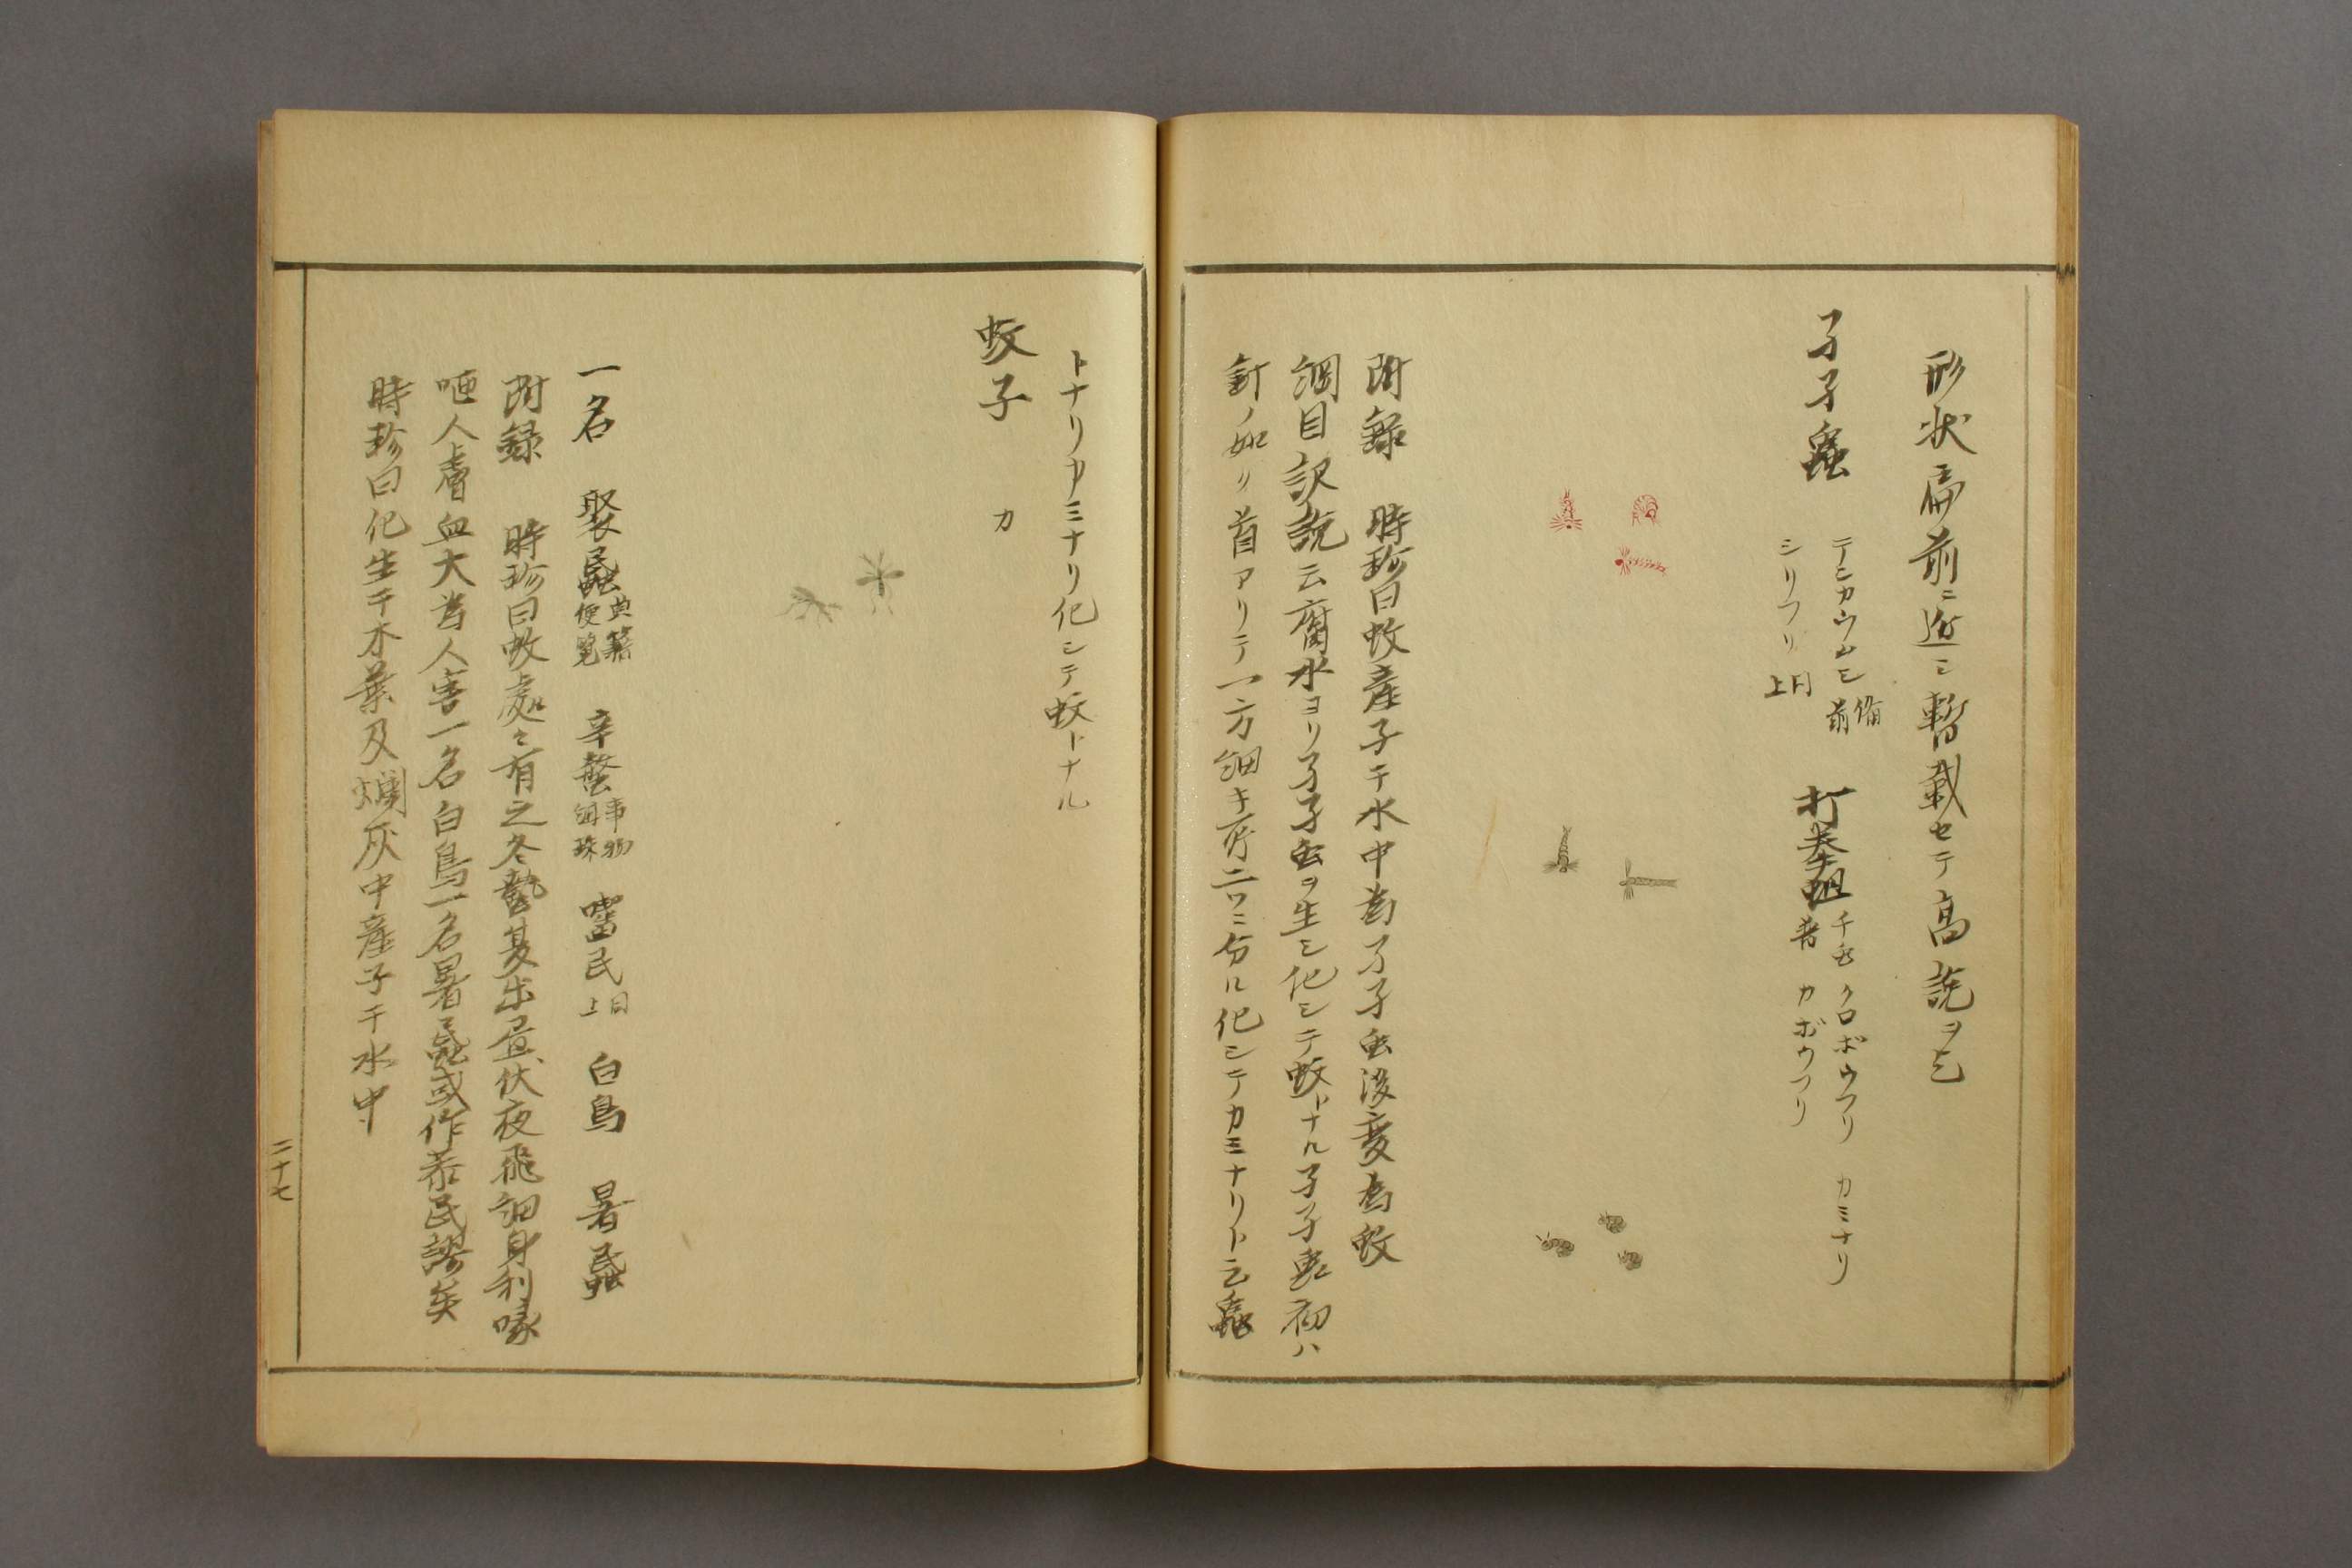 形状扁前ニ近シ暫載セテ高説ヲ乞
孑孑蟲
テンカウムシ 備前
シリフリ 同上
打拳蛆 千虫 クロボウフリ カミナリ
普 カボウフリ
附錄 時珍曰蚊産子于水中為孑孑虫後変為蚊
綱目訳説云腐水ヨリ孑孑虫ヲ生シ化シテ蚊トナル孑孑虫初ハ
針ノ如ク首アリテ一方細キ所二ツニ分ル化シテカミナリト云蟲
トナリカミナリ化シテ蚊トナル
蚊子 カ
一名 聚蟁 典籍便覧 辛螫 事物紺珠 㗱民 同上 白鳥 暑蟁
附録 時珍曰蚊處々有之冬蟄夏出昼伏夜飛細身利喙
咂人膚血大為人害一名白鳥一名暑蟁或作黍民謬矣
時珍曰化生于木葉及爛灰中産子于水中
二十七